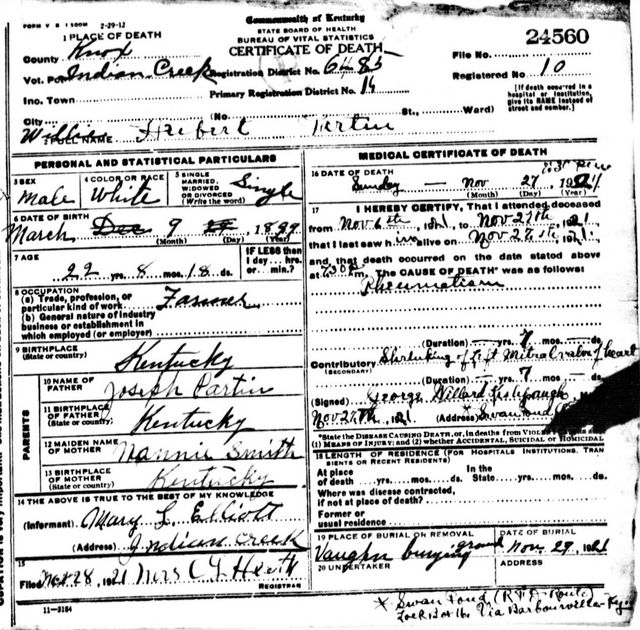 FORM V S 1 500M 2-29-12
Commonwealth of Kentucky
STATE BOARD OF HEALTH
BUREAU OF VITAL STATISTICS
CERTIFICATE OF DEATH
24560
1 PLACE OF DEATH
County Knox
Vot. Pct. Indian Creek
Registration District No. 6485
File No.
Inc. Town
Primary Registration District No. 16
Registered No 10
[If death occurred in a
hospital or institution,
give its NAME instead of
street and number.]
City (No. St., Ward)
2 FULL NAME William Hebert Partin
PERSONAL AND STATISTICAL PARTICULARS
3 SEX Male
4 COLOR OR RACE White
5 SINGLE
MARRIED,
WIDOWED
OR DIVORCED
(Write the word) Single
6 DATE OF BIRTH
March Dec 9 1899
(Month) (Day) (Year)
7 AGE
22 yrs. 8 mos. 18 ds.
IF LESS than
1 day, hrs.
or min.?
8 OCCUPATION
(a) Trade, profession, or
particular kind of work Farmer
(b) General nature of industry
business or establishment in
which employed (or employer)
9 BIRTHPLACE
(State or country) Kentucky
PARENTS
10 NAME OF
FATHER Joseph Partin
11 BIRTHPLACE
OF FATHER
(State or country) Kentucky
12 MAIDEN NAME
OF MOTHER Nannie Smith
13 BIRTHPLACE
OF MOTHER
(State or country) Kentucky
14 THE ABOVE IS TRUE TO THE BEST OF MY KNOWLEDGE
(Informant) Mary L. Elliott
(Address) Indian Creek
15
Filed Nov 28, 1921 Mrs C J Heath
REGISTRAR
11-3184
MEDICAL CERTIFICATE OF DEATH
16 DATE OF DEATH
Sunday Nov 27, 1921
(Month) (Day) (Year)
17 I HEREBY CERTIFY, That I attended deceased
from Nov 6th, 1921, to Nov 27th 1921
that I last saw him alive on Nov 27th 1921,
and that death occurred on the date stated above
at 730P m. The CAUSE OF DEATH* was as follows:
Rheumatism
(Duration) yrs. 7 mos. ds.
Contributory Shrinking of left Mitral valve of heart
(SECONDARY)
(Duration) yrs. 7 mos. ds.
(Signed) George Willard
Nov 27th, 1921 (Address) Swan Pond
*State the DISEASE CAUSING DEATH, or, in deaths from
(1) MEANS OF INJURY; and (2) whether ACCIDENTAL, SUICIDAL or HOMICIDAL
18 LENGTH OF RESIDENCE (FOR HOSPITALS INSTITUTIONS, TRAN
SIENTS OR RECENT RESIDENTS)
At place
of death yrs. mos. ds.
In the
State yrs. mos. ds.
Where was disease contracted,
if not at place of death?
Former or
usual residence
19 PLACE OF BURIAL OR REMOVAL
Vaughn burying ground
DATE OF BURIAL
Nov. 29, 1921
20 UNDERTAKER
ADDRESS
* Swan Pond (R.F.D. Route)
Lock Box 16. Via Barbourville Ky.